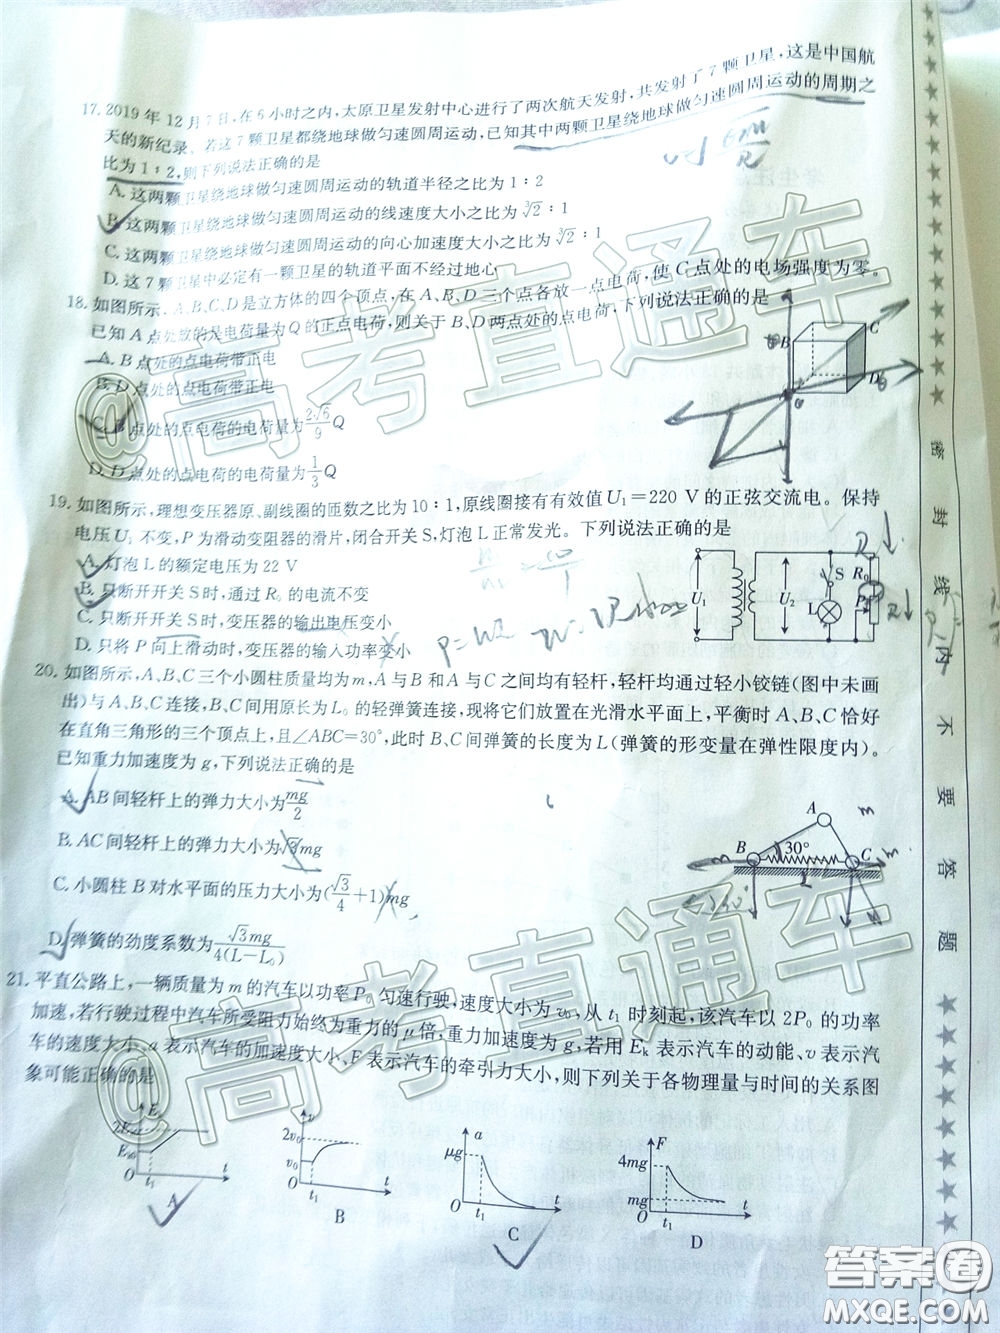 17. 2019年12月7日,在6小时之内,太原卫星发射中心进行了两次航天发射,共发射了7颗卫星,这是中国航
天的新纪录。若这7颗卫星都绕地球做匀速圆周运动,已知其中两颗卫星绕地球做匀速圆周运动的周期之
比为1∶2,则下列说法正确的是
A. 这两颗卫星绕地球做匀速圆周运动的轨道半径之比为1∶2
B. 这两颗卫星绕地球做匀速圆周运动的线速度大小之比为∛2∶1
C. 这两颗卫星绕地球做匀速圆周运动的向心加速度大小之比为∛2∶1
D. 这7颗卫星中必定有一颗卫星的轨道平面不经过地心
18. 如图所示,A、B、C、D是立方体的四个顶点,在A、B、D三个点各放一点电荷,使C点处的电场强度为零。
已知A点处放的是电荷量为Q的正点电荷,则关于B、D两点处的点电荷,下列说法正确的是
A. B点处的点电荷带正电
B. D点处的点电荷带正电
C. B点处的点电荷的电荷量为2√6/9 Q
D. D点处的点电荷的电荷量为1/3 Q
B C D
19. 如图所示,理想变压器原、副线圈的匝数之比为10∶1,原线圈接有有效值U₁=220 V的正弦交流电。保持
电压U₁不变,P为滑动变阻器的滑片,闭合开关S,灯泡L正常发光。下列说法正确的是
A. 灯泡L的额定电压为22 V
B. 只断开开关S时,通过R₀的电流不变
C. 只断开开关S时,变压器的输出电压变小
D. 只将P向上滑动时,变压器的输入功率变小
U₁ U₂ S L R₀ P
20. 如图所示,A、B、C三个小圆柱质量均为m,A与B和A与C之间均有轻杆,轻杆均通过轻小铰链(图中未画
出)与A、B、C连接,B、C间用原长为L₀的轻弹簧连接,现将它们放置在光滑水平面上,平衡时A、B、C恰好
在直角三角形的三个顶点上,且∠ABC=30°,此时B、C间弹簧的长度为L(弹簧的形变量在弹性限度内)。
已知重力加速度为g,下列说法正确的是
A. AB间轻杆上的弹力大小为mg/2
B. AC间轻杆上的弹力大小为√3mg
C. 小圆柱B对水平面的压力大小为(√3/4+1)mg
D. 弹簧的劲度系数为√3mg/4(L-L₀)
A B 30° C
21. 平直公路上,一辆质量为m的汽车以功率P₀匀速行驶,速度大小为v₀,从t₁时刻起,该汽车以2P₀的功率
加速,若行驶过程中汽车所受阻力始终为重力的μ倍,重力加速度为g,若用Eₖ表示汽车的动能、v表示汽
车的速度大小、a表示汽车的加速度大小、F表示汽车的牵引力大小,则下列关于各物理量与时间的关系图
象可能正确的是
O t₁ t A
v 2v₀ v₀ O t₁ t B
a μg O t₁ t C
F 4mg mg O t₁ t D
密封线内不要答题
@高考直通车
@高考直通车
答案圈
MXQE.COM